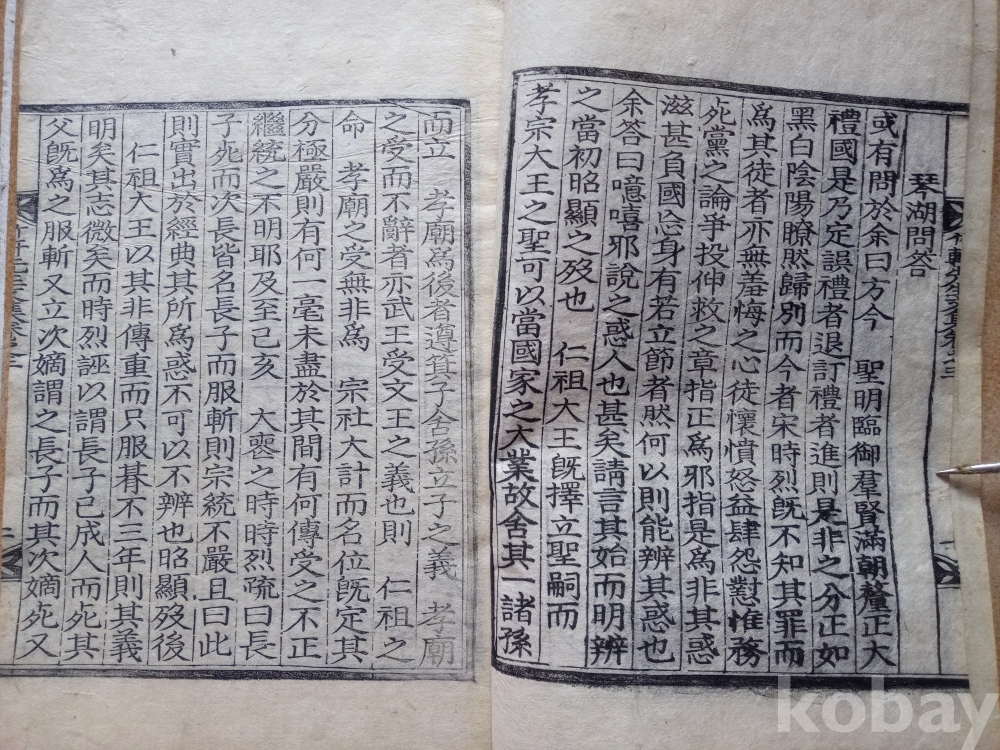 琴湖問答
或有問於余曰方今　聖明臨御羣賢滿朝釐正大
禮國是乃定誤禮者退訂禮者進則是非之分正如
黑白陰陽瞭然歸別而今者宋時烈旣不知其罪而
爲其徒者亦無羞悔之心徒懷憤怒益肆怨懟惟務
死黨之論爭投伸救之章指正爲邪指是爲非其惑
滋甚負國忘身有若立節者然何以則能辨其惑也
余答曰噫嘻邪說之惑人也甚矣請言其始而明辨
之當初昭顯之歿也　仁祖大王旣擇立聖嗣而
孝宗大王之聖可以當國家之大業故舍其一諸孫
而立　孝廟爲後者遵箕子舍孫立子之義　孝廟
之受而不辭者亦武王受文王之義也則　仁祖之
命　孝廟之受無非爲　宗社大計而名位旣定其
分極嚴則有何一毫未盡於其間有何傳受之不正
繼統之不明耶及至己亥　大喪之時時烈疏曰長
子死而次長皆名長子而服斬則宗統不嚴且曰此
則實出於經典其所爲惑不可以不辨也昭顯歿後
仁祖大王以其非傳重而只服朞不三年則其義
明矣其志微矣而時烈誣以謂長子已成人而死其
父旣爲之服斬又立次嫡謂之長子而其次嫡死又
kobay